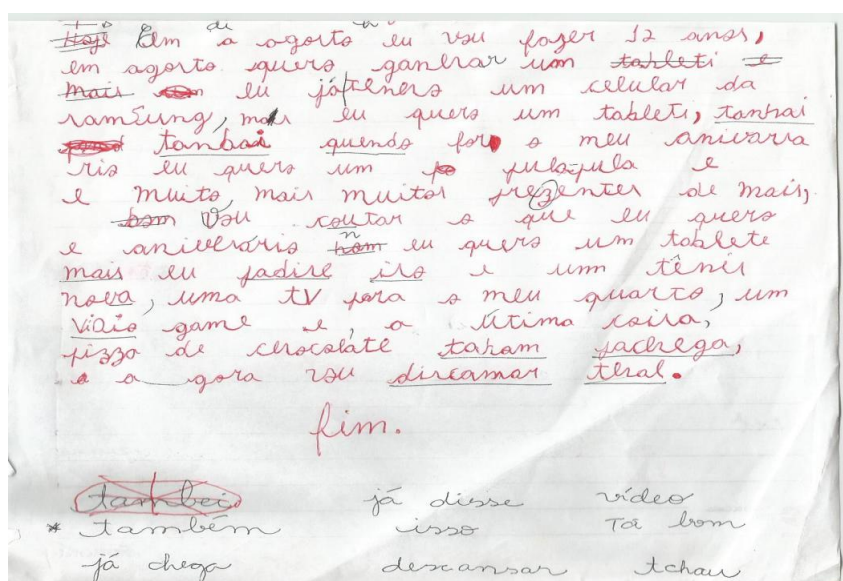 Hoje Em de agosto eu vou fazer 12 anos,
em agosto quero ganhar um tableti e
mais eu já tenho um celular da
samSung, mas eu quero um tableti, tanbai
tanbai quando for o meu anivarsa
rio eu quero um pulapula e
e muito mais muitos prezentes de mais,
bom Vou contar o que eu quero
e aniversário eu quero um tablete
mais eu jadise iso e um tênis
nova, uma tv para o meu quarto, um
vidio game e, a útima coisa,
pizza de chocolate tabam jachega,
e a gora vou discamsar
fim.
tambei já disse vídeo
* também isso Tá bom
já chega descansar tchau